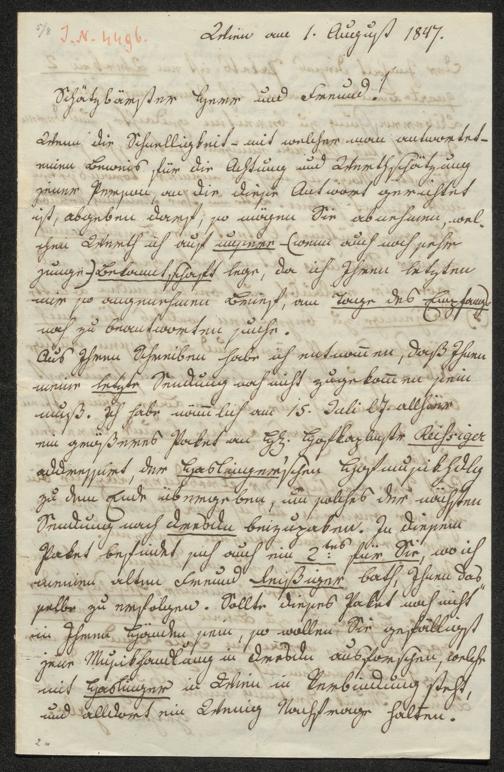 5/8 I. N. 4496.
Wien am 1. August 1847.
Schätzbarster Herr und Freund!
Wenn die Schnelligkeit – mit welcher man antwortet –
einen Beweis für die Achtung und Werthschätzung
jener Person, an die diese Antwort gerichtet
ist, abgeben darf, so mögen Sie abnehmen, wel-
chen Werth ich auf unsere – (wenn auch noch sehr
junge) Bekanntschaft lege, da ich Ihren letzten
mir so angenehmen Brief, am Tage des Empfangs
noch zu beantworten suche.
Aus Ihrem Schreiben habe ich entnommen, daß Ihnen
meine letzte Sendung noch nicht zugekommen sein
muß. Ich habe nämlich am 15. Juli allhier
ein größeres Paket an Hofkapmstr Reissiger
addressirt, der Haslinger'schen Hofmusikhdlg
zu dem Ende übergeben, um solches der nächsten
Sendung nach Dresden beizupaken. In diesem
Paket befindet sich auch ein 2tes für Sie, wo ich
meinen alten Freund Reißiger bath, Ihnen das-
selbe zu verfolgen. Sollte dieses Paket noch nicht
in Ihren Händen sein, so wollen Sie gefälligst
jene Musikhandlung in Dresden ausforschen, welche
mit Haslinger in Wien in Verbindung steht,
und alldort ein Wenig Nachfrage halten.